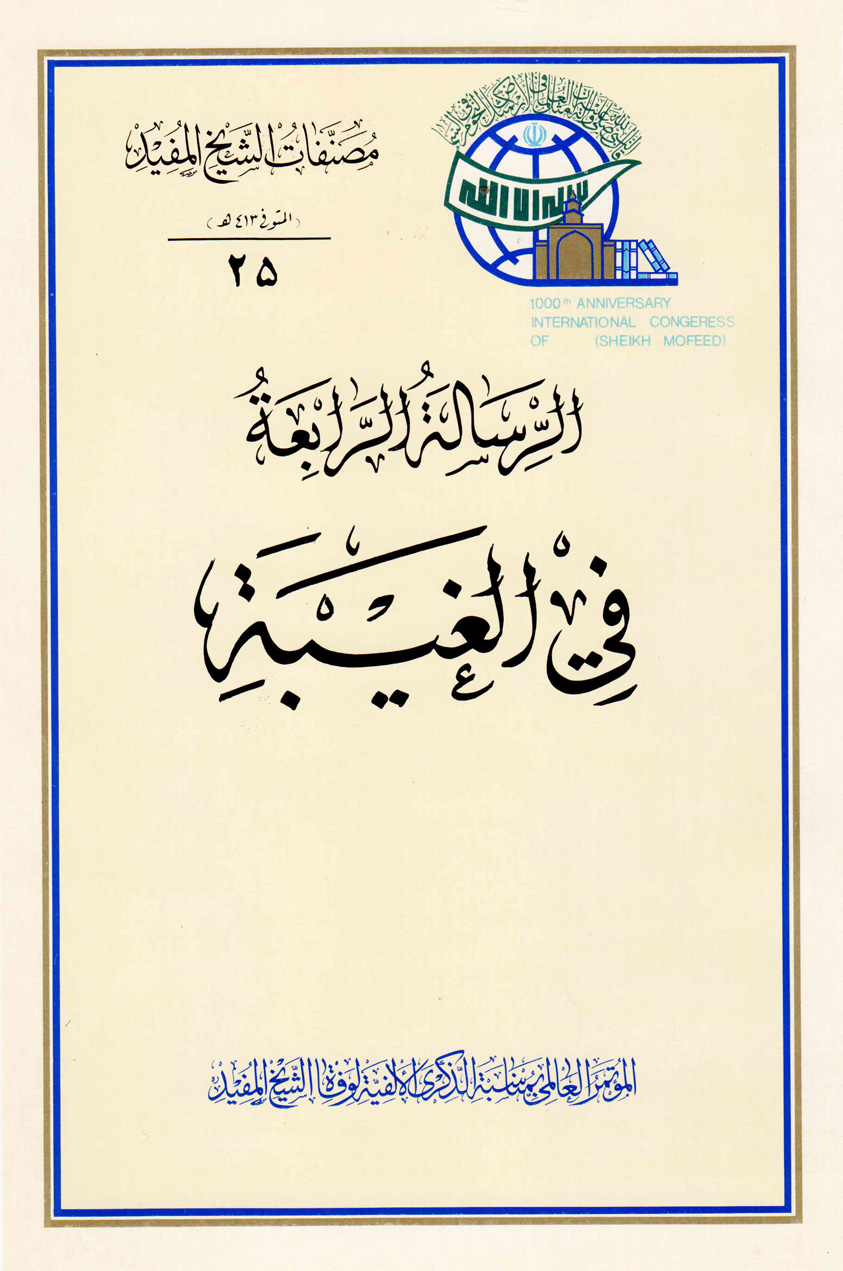 مُصَنَّفَاتُ الشَّيْخِ المُفِيْدِ
(المتوفى ٤١٣ هـ)
٢٥
لا إله إلا الله
1000th ANNIVERSARY
INTERNATIONAL CONGERESS
OF (SHEIKH MOFEED)
الرِّسَالَةُ الرَّابِعَةُ
فِي الغَيْبَةِ
المُؤتَمَر العَالَمِي بِمُنَاسَبَةِ الذِّكْرى الأَلفِيَّةِ لِوَفَاةِ الشَّيْخِ المُفِيْدِ